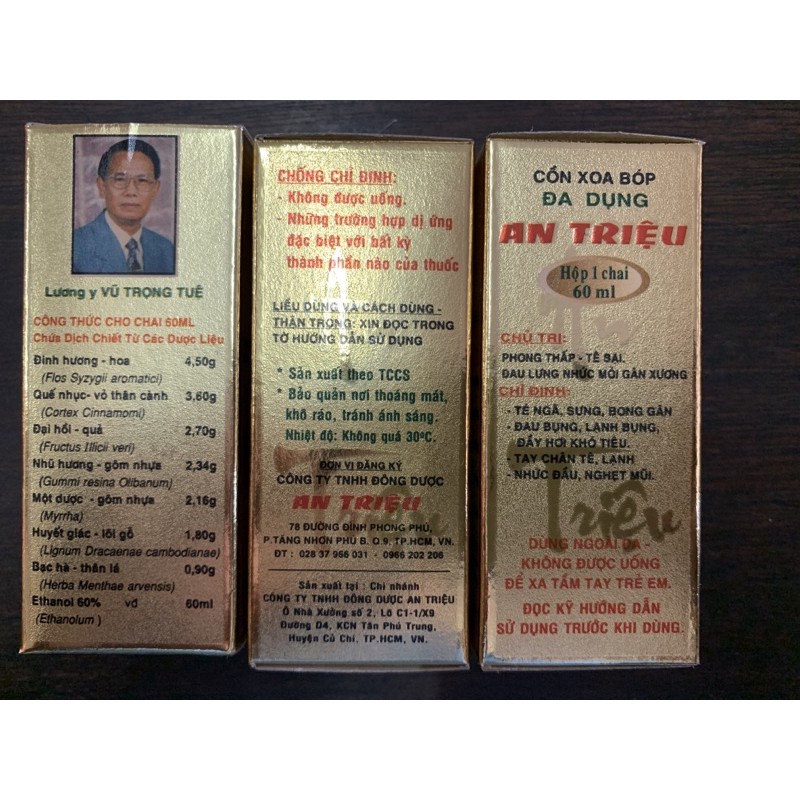 Lương y VŨ TRỌNG TUỆ
CÔNG THỨC CHO CHAI 60ML
Chứa Dịch Chiết Từ Các Dược Liệu
Đinh hương - hoa 4,50g
(Flos Syzygii aromatici)
Quế nhục- vỏ thân cành 3,60g
(Cortex Cinnamomi)
Đại hồi - quả 2,70g
(Fructus Illicii veri)
Nhũ hương - gôm nhựa 2,34g
(Gummi resina Olibanum)
Một dược - gôm nhựa 2,16g
(Myrrha)
Huyết giác - lõi gỗ 1,80g
(Lignum Dracaenae cambodianae)
Bạc hà - thân lá 0,90g
(Herba Menthae arvensis)
Ethanol 60% vđ 60ml
(Ethanolum )
CHỐNG CHỈ ĐỊNH:
- Không được uống.
- Những trường hợp dị ứng
đặc biệt với bất kỳ
thành phần nào của thuốc
LIỀU DÙNG VÀ CÁCH DÙNG -
THẬN TRỌNG: XIN ĐỌC TRONG
TỜ HƯỚNG DẪN SỬ DỤNG
* Sản xuất theo TCCS
* Bảo quản nơi thoáng mát,
khô ráo, tránh ánh sáng.
Nhiệt độ: Không quá 30ºC.
ĐƠN VỊ ĐĂNG KÝ
CÔNG TY TNHH ĐÔNG DƯỢC
AN TRIỆU
78 ĐƯỜNG ĐÌNH PHONG PHÚ,
P.TĂNG NHƠN PHÚ B. Q.9. TP.HCM, VN.
ĐT : 028 37 966 031 - 0966 202 206
Sản xuất tại : Chi nhánh
CÔNG TY TNHH ĐÔNG DƯỢC AN TRIỆU
Ô Nhà Xưởng số 2, Lô C1-1/X9
Đường D4, KCN Tân Phú Trung,
Huyện Củ Chi, TP.HCM, VN.
CỒN XOA BÓP
ĐA DỤNG
AN TRIỆU
Hộp 1 chai
60 ml
CHỦ TRỊ:
PHONG THẤP - TÊ SẠI.
ĐAU LƯNG NHỨC MỎI GÂN XƯƠNG
CHỈ ĐỊNH:
- TÉ NGÃ, SƯNG, BONG GÂN
- ĐAU BỤNG, LẠNH BỤNG,
ĐẦY HƠI KHÓ TIÊU.
- TAY CHÂN TÊ, LẠNH
- NHỨC ĐẦU, NGHẸT MŨI.
Triệu
DÙNG NGOÀI DA -
KHÔNG ĐƯỢC UỐNG
ĐỂ XA TẦM TAY TRẺ EM.
ĐỌC KỸ HƯỚNG DẪN
SỬ DỤNG TRƯỚC KHI DÙNG.